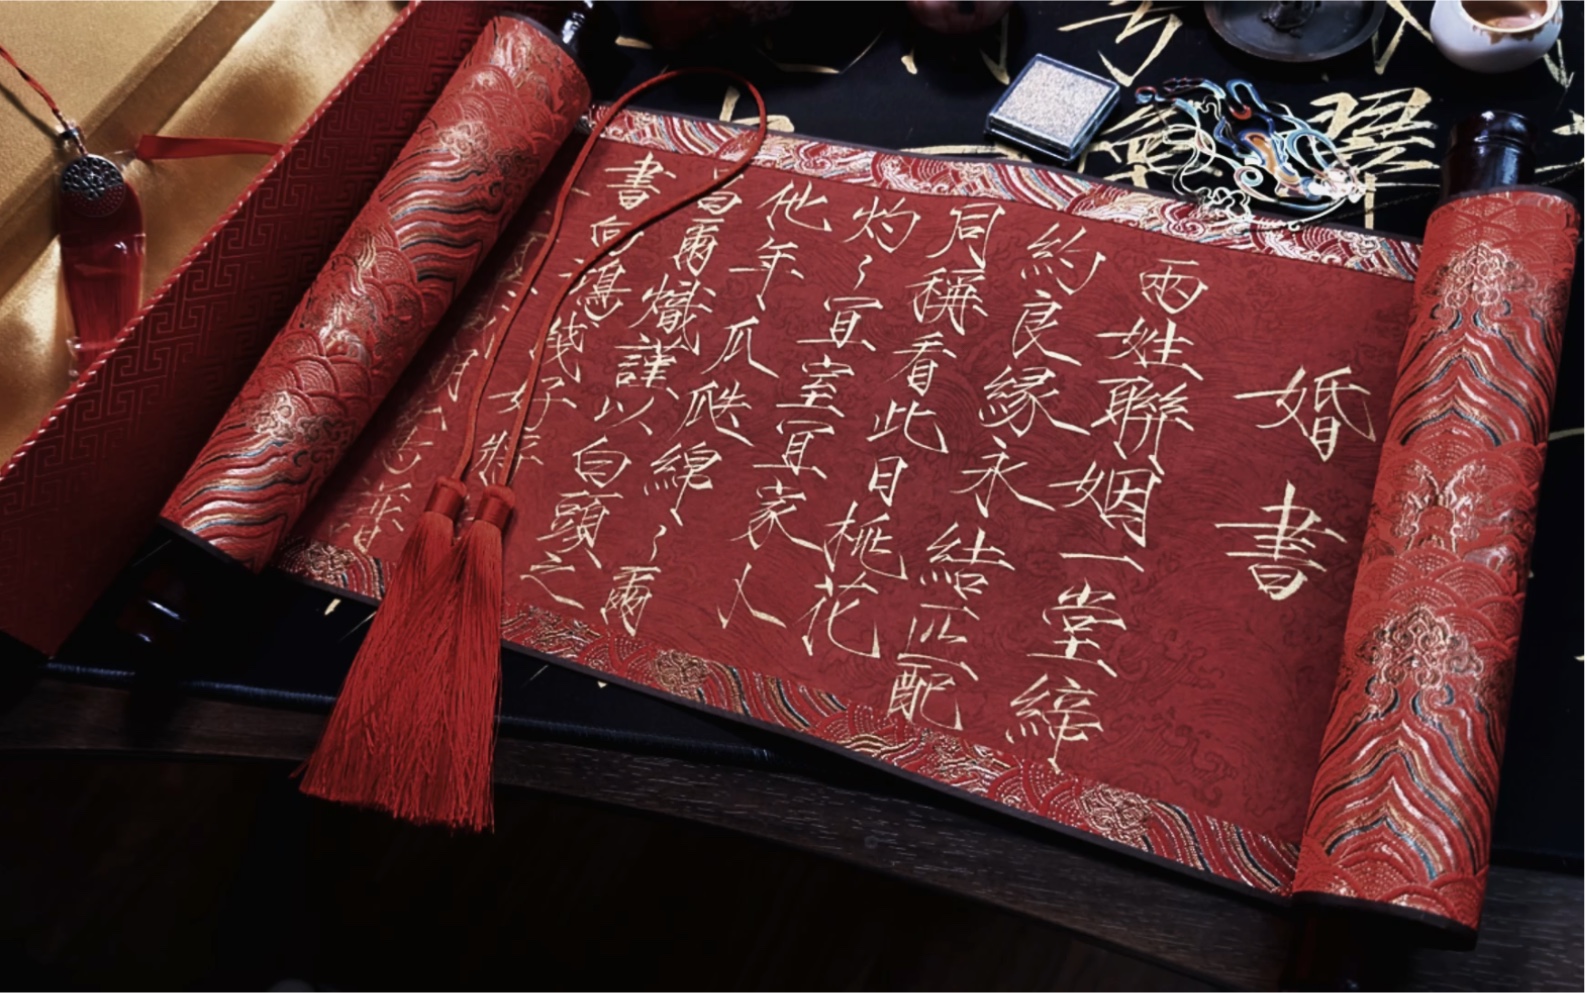 婚書
兩姓聯姻一堂締
約良緣永結匹配
同稱看此日桃花
灼〻宜室宜家卜
他年瓜瓞綿〻爾
昌爾熾謹以白頭之
書向鴻箋好將